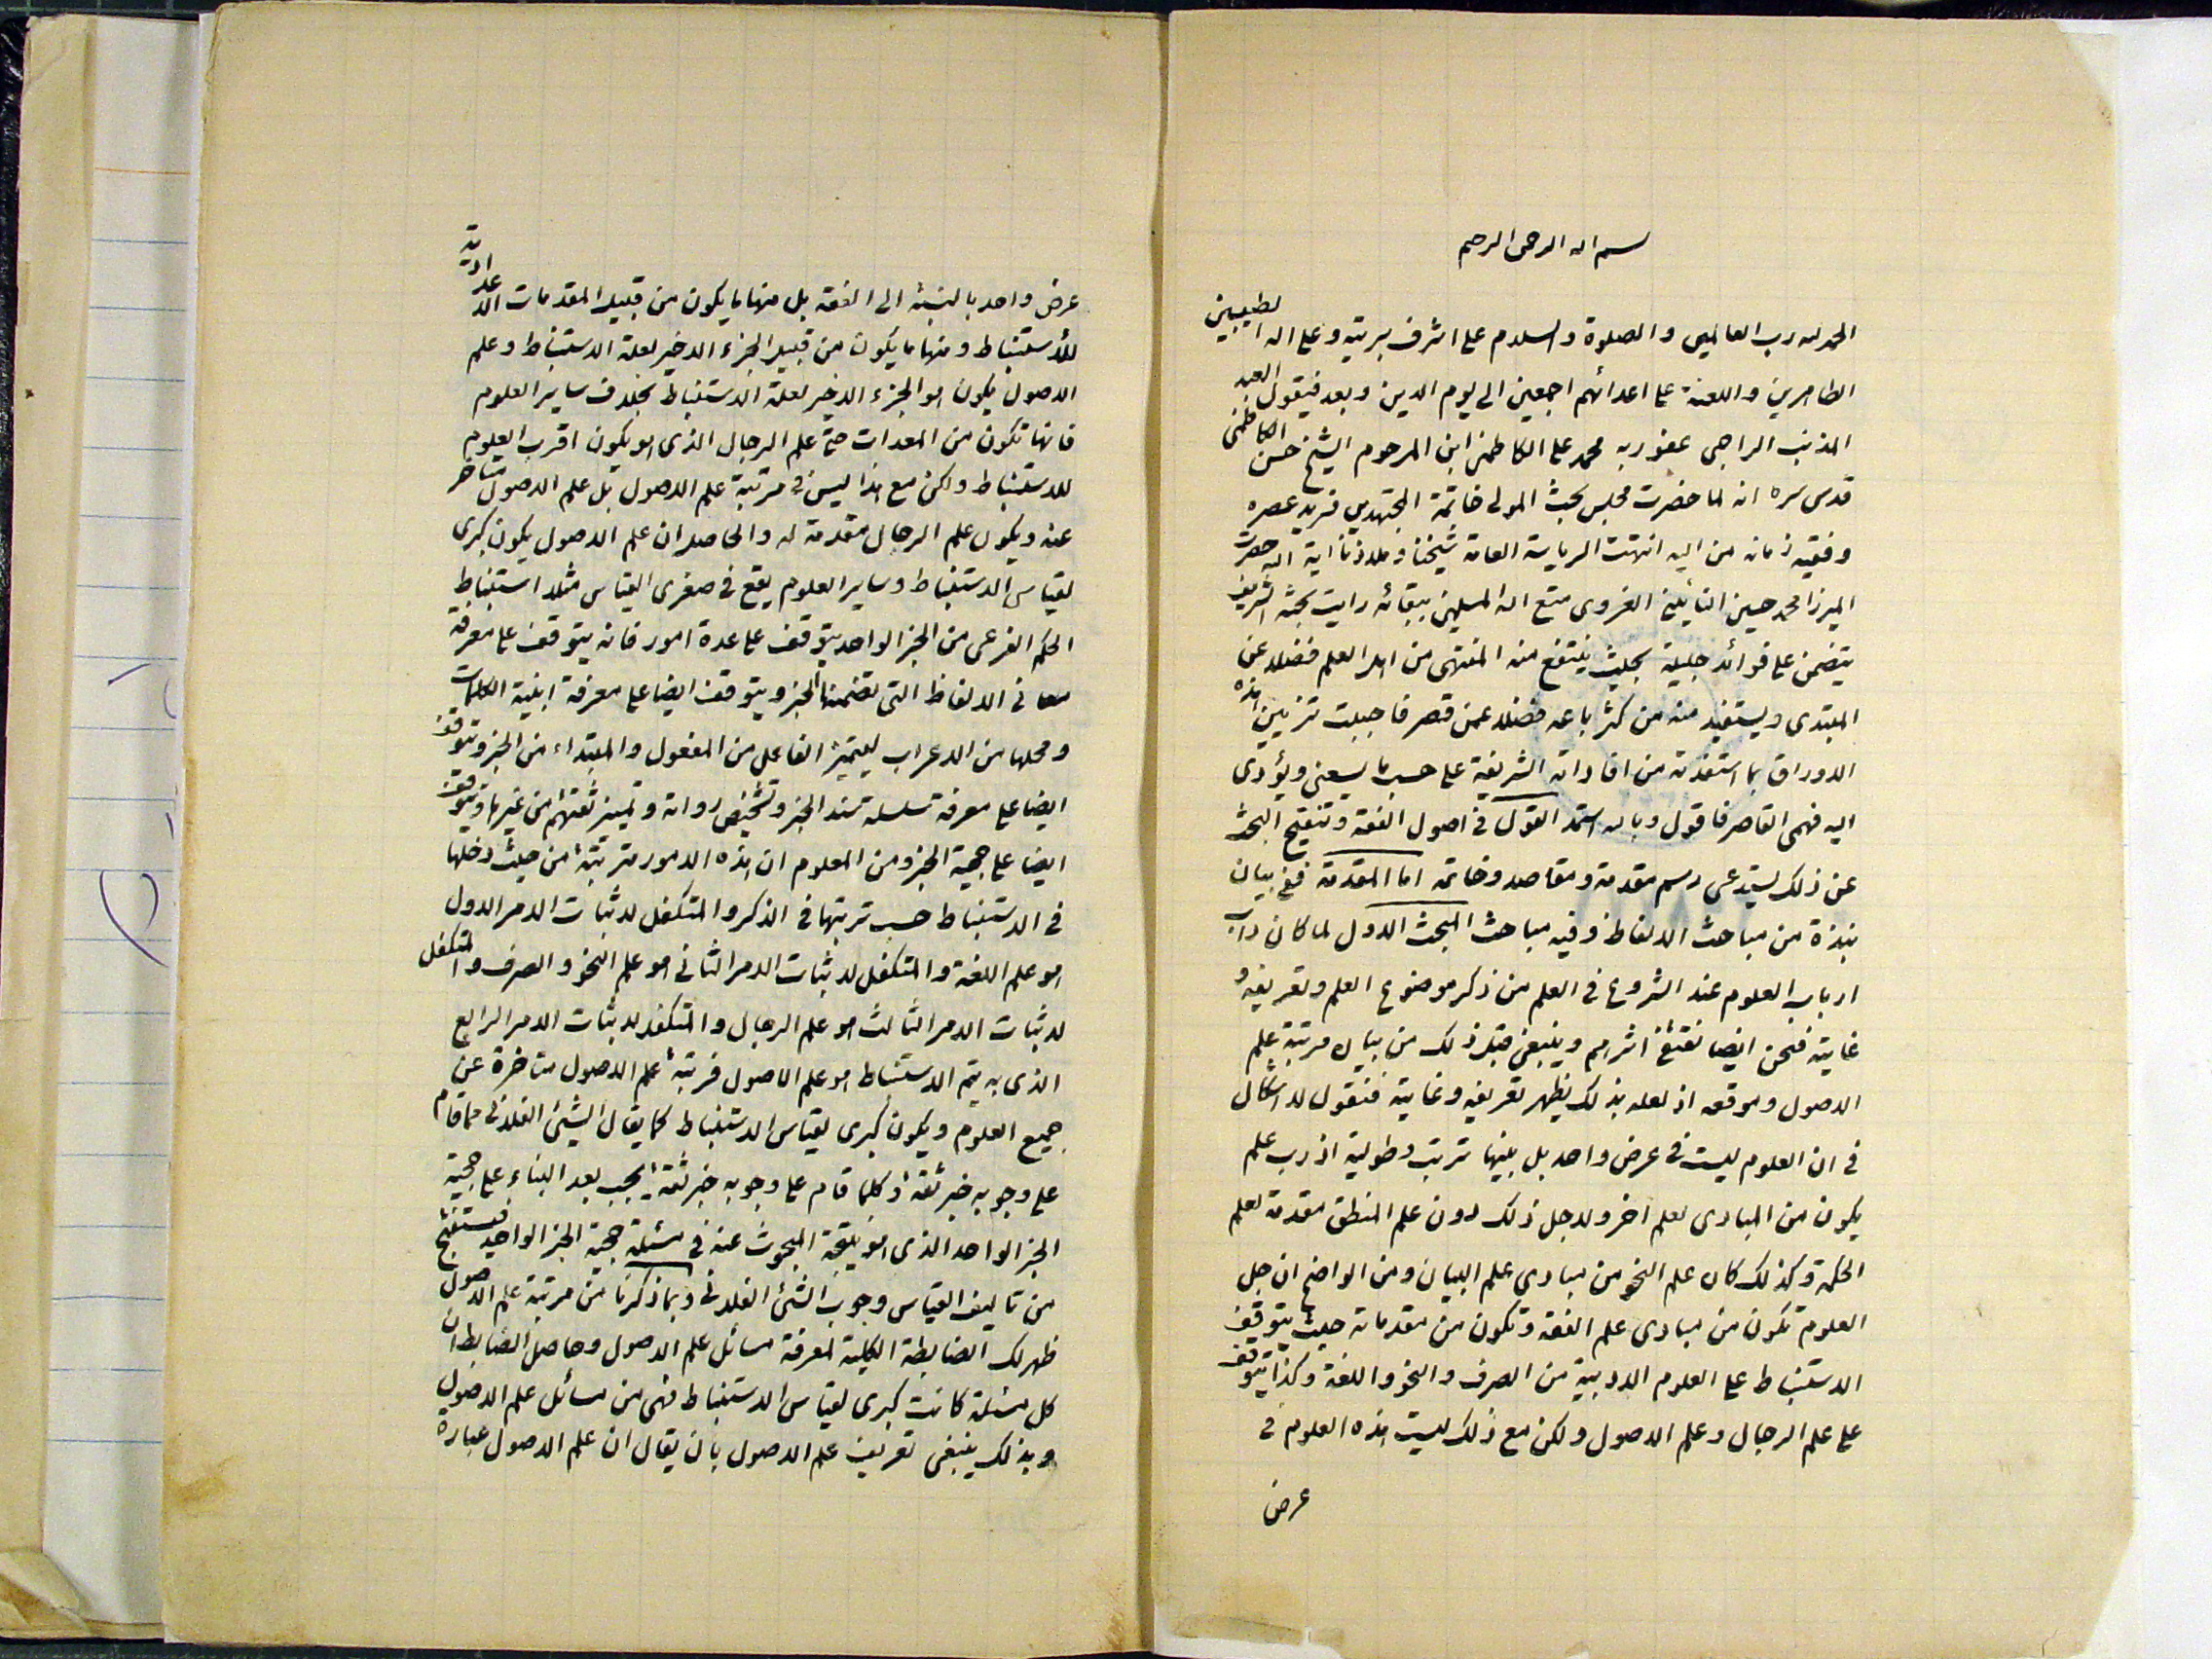 بسم الله الرحمن الرحيم
الحمد لله رب العالمين والصلوة والسلام على اشرف بريته وعلى اله الطيبين
الطاهرين واللعنة على اعدائهم اجمعين الى يوم الدين وبعد فيقول العبد
المذنب الراجى عفو ربه محمد على الكاظمى ابن المرحوم الشيخ حسن الكاظمى
قدس سره انه لما حضرت مجلس بحث المولى خاتمة المجتهدين فريد عصره
وفقيه زمانه من اليه انتهت الرياسة العامة شيخنا وملاذنا اية الله حضرت
الميرزا محمد حسين النائينى الغروى متع الله المسلمين ببقائه رايت بحثه الشريف
يتضمن على فوائد جليلة بحيث ينتفع منه المنتهى من اهل العلم فضلا عن
المبتدى ويستفيد منه من كثر باعه فضلا عمن قصر فاحببت تزيين هذه
الاوراق بما استفدته من افاداته الشريفة على حسب ما يسعنى ويؤدى
اليه فهمى القاصر فاقول وبالله استمد القول فى اصول الفقه وتنقيح البحث
عن ذلك يستدعى رسم مقدمة ومقاصد وخاتمه اما المقدمة ففى بيان
نبذة من مباحث الالفاظ وفيه مباحث المبحث الاول لما كان داب
ارباب العلوم عند الشروع فى العلم من ذكر موضوع العلم وتعريفه و
غايته فنحن ايضا نقتفى اثرهم وينبغى قبل ذلك من بيان مرتبة علم
الاصول وموقعه اذ لعله بذلك يظهر تعريفه وغايته فنقول لا اشكال
فى ان العلوم ليست فى عرض واحد بل بينها ترتب وطولية اذ رب علم
يكون من المبادى لعلم اخر ولاجل ذلك دون علم المنطق مقدمة لعلم
الحكمة وكذلك كان علم النحو من مبادى علم البيان ومن الواضح ان جل
العلوم تكون من مبادى علم الفقه وتكون من مقدماته حيث يتوقف
الاستنباط على العلوم الادبية من الصرف والنحو واللغة وكذا يتوقف
على علم الرجال وعلم الاصول ولكن مع ذلك ليست هذه العلوم فى
عرض
عرض واحد بالنسبة الى الفقه بل منها ما يكون من قبيل المقدمات الاعدادية
للاستنباط ومنها ما يكون من قبيل الجزء الاخير لعلة الاستنباط وعلم
الاصول يكون هو الجزء الاخير لعلة الاستنباط بخلاف ساير العلوم
فانها تكون من المعدات حتى علم الرجال الذى هو يكون اقرب العلوم
للاستنباط ولكن مع هذا ليس فى مرتبة علم الاصول بل علم الاصول متاخر
عنه ويكون علم الرجال مقدمة له والحاصل ان علم الاصول يكون كبرى
لقياس الاستنباط وساير العلوم يقع فى صغرى القياس مثلا استنباط
الحكم الفرعى من الخبر الواحد يتوقف على عدة امور فانه يتوقف على معرفة
معانى الالفاظ التى تضمنها الخبر ويتوقف ايضا على معرفة ابنية الكلمات
ومحلها من الاعراب ليتميز الفاعل من المفعول والمبتداء من الخبر ويتوقف
ايضا على معرفة سلسلة سند الخبر وتشخيص رواته وتميز ثقتهم من غيرها ويتوقف
ايضا على حجية الخبر ومن المعلوم ان هذه الامور مترتبة من حيث دخلها
فى الاستنباط حسب ترتبها فى الذكر والمتكفل لاثبات الامر الاول
هو علم اللغة والمتكفل لاثبات الامر الثانى هو علم النحو والصرف والمتكفل
لاثبات الامر الثالث هو علم الرجال والمتكفل لاثبات الامر الرابع
الذى به يتم الاستنباط هو علم الاصول فرتبة علم الاصول متاخرة عن
جميع العلوم ويكون كبرى لقياس الاستنباط كما يقال الشيئ الفلانى مما قام
على وجوبه خبر ثقة وكلما قام على وجوبه خبر ثقة يجب بعد البناء على حجية
الخبر الواحد الذى هو نتيجة المبحوث عنه فى مسئلة حجية الخبر الواحد فيستنتج
من تاليف القياس وجوب الشئ الفلانى وبما ذكرنا من مرتبة علم الاصول
ظهر لك الضابطة الكلية لمعرفة مسائل علم الاصول وحاصل الضابط ان
كل مسئلة كانت كبرى لقياس الاستنباط فهى من مسائل علم الاصول
وبذلك ينبغى تعريف علم الاصول بان يقال ان علم الاصول عبارة